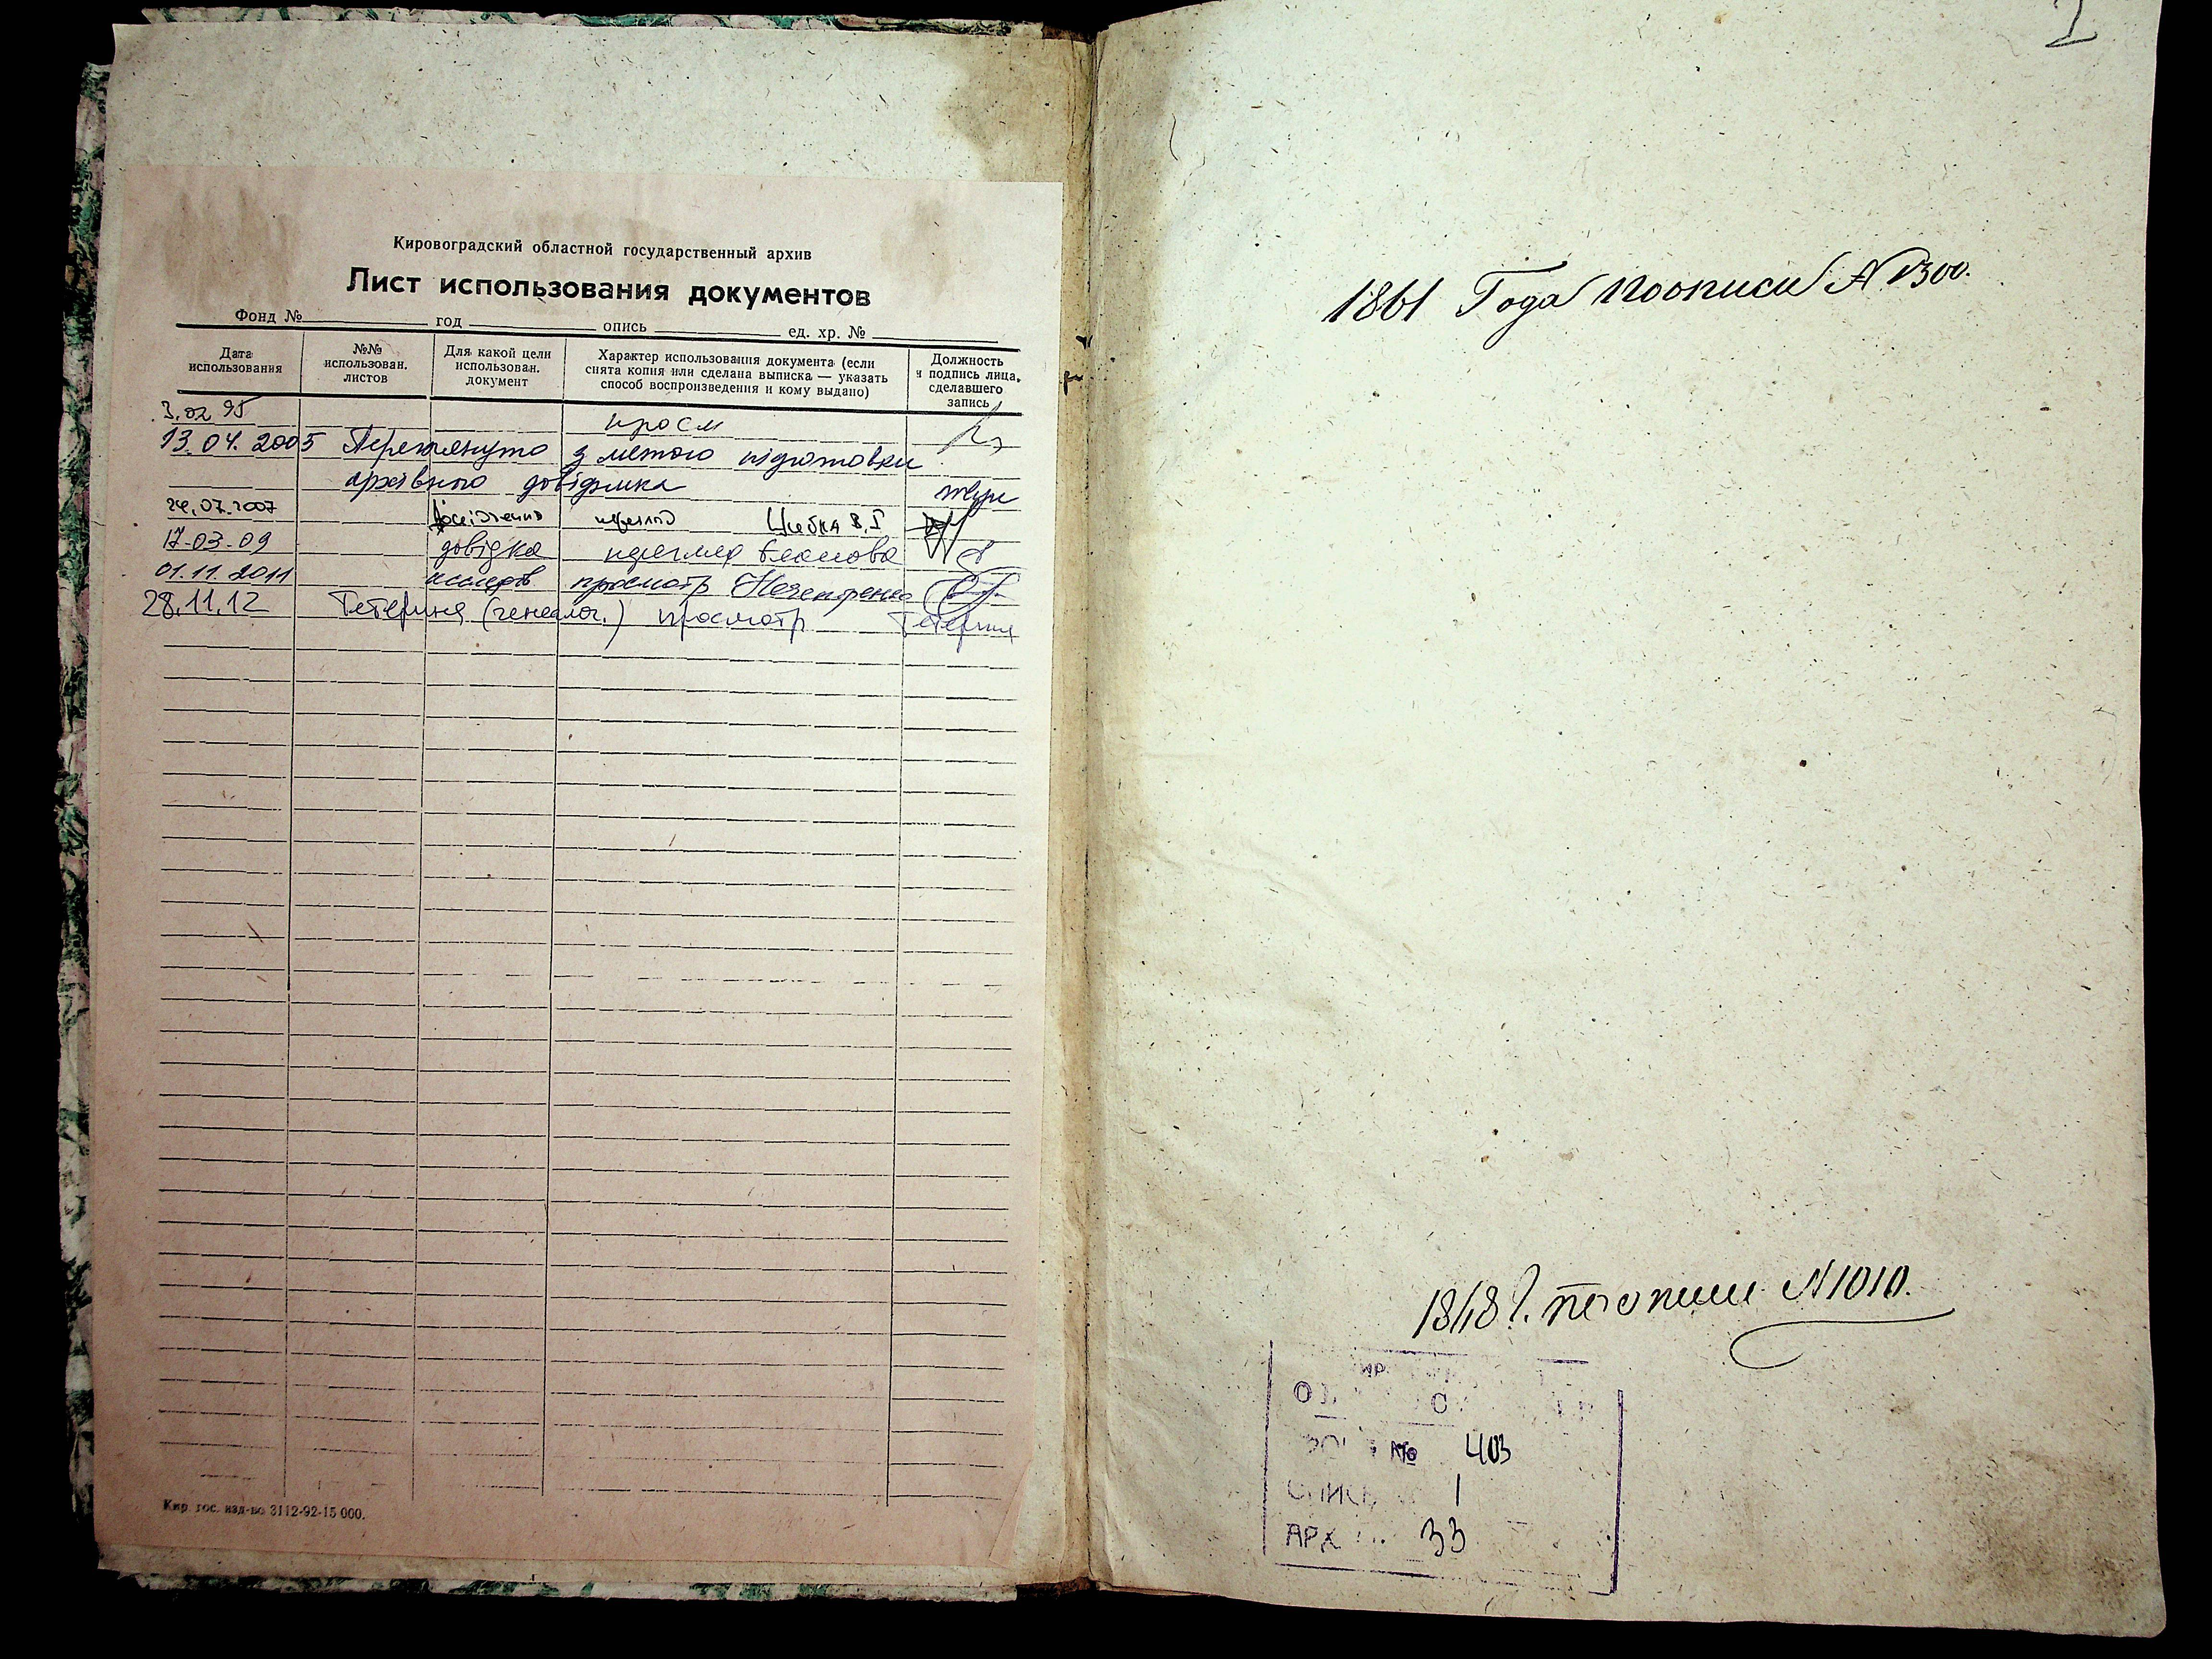 Кировоградский областной государственный архив
Лист использования документов
Фонд № год опись ед. хр. №
Дата использования
№№ использован. листов
Для какой цели использован. документ
Характер использования документа (если снята копия или сделана выписка — указать способ воспроизведения и кому выдано)
Должность и подпись лица, сделавшего запись
3.02 95 просм
13.04.2005 Переглянуто з метою підготовки
архівного довідника
24.07.2007 перегляд Цибка В.І
17-03-09 довідка перегляд
01.11.2011 исслед просмотр
28.11.12 Тетериня (генеалог.) просмотр
Кир. гос. изд-во 3112-92-15 000.
1
1861 Года по описи № 1300.
1848 г. по описи № 1010.
№ 403
ОПИСЬ 1
АРХ 33